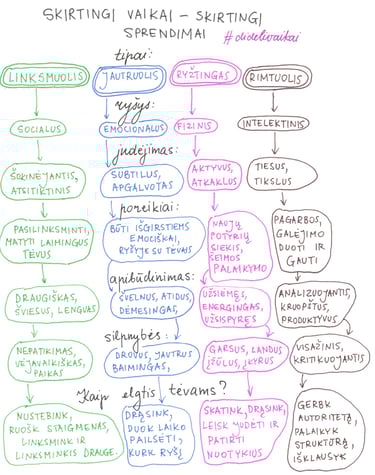 SKIRTINGI VAIKAI – SKIRTINGI
SPRENDIMAI #didelivaikai
tipai:
LINKSMUOLIS
JAUTRUOLIS
RYŽTINGAS
RIMTUOLIS
ryšys:
SOCIALUS
EMOCIONALUS
FIZINIS
INTELEKTINIS
judėjimas:
ŠOKINĖJANTIS,
ATSITIKTINIS
SUBTILUS,
APGALVOTAS
AKTYVUS,
ATKAKLUS
TIESUS,
TIKSLUS
poreikiai:
PASILINKSMINTI,
MATYTI LAIMINGUS
TĖVUS
BŪTI IŠGIRSTIEMS
EMOCIŠKAI,
RYŠYJE SU TĖVAIS
NAUJŲ
POTYRIŲ
SIEKIS,
ŠEIMOS
PALAIKYMO
PAGARBOS,
GALĖJIMO
DUOTI IR
GAUTI
apibūdinimas:
DRAUGIŠKAS,
ŠVIESUS, LENGVAS
ŠVELNUS, ATIDUS,
DĖMESINGAS,
UŽSIĖMĘS,
ENERGINGAS,
UŽSISPYRĘS
ANALIZUOJANTIS,
KRUOPŠTUS,
PRODUKTYVUS
silpnybės:
NEPATIKIMAS,
VĖJAVAIKIŠKAS,
PAIKAS
DROVUS, JAUTRUS
BAIMINGAS,
GARSUS, LANDUS
ĮŽŪLUS, ĮKYRUS
VISAŽINIS,
KRITIKUOJANTIS
Kaip elgtis tėvams?
NUSTEBINK,
RUOŠK STAIGMENAS,
LINKSMINK IR
LINKSMINKIS DRAUGE.
DRĄSINK,
DUOK LAIKO
PAILSĖTI,
KURK RYŠĮ
SKATINK, DRĄSINK,
LEISK JUDĖTI IR
PATIRTI
NUOTYKIUS
GERBK
AUTORITETĄ,
PALAIKYK
STRUKTŪRĄ,
IŠKLAUSYK